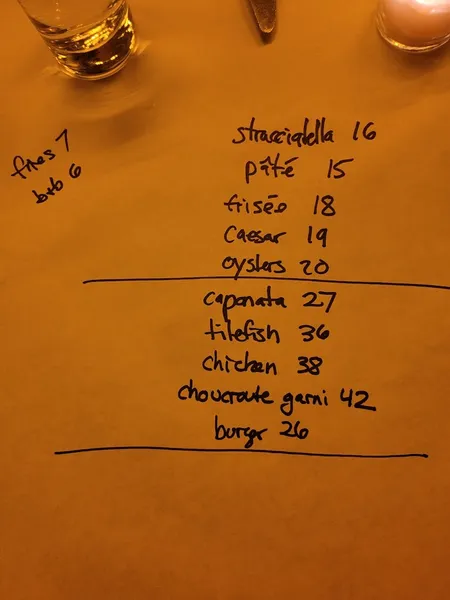 fries 7
b+b 6
stracciatella 16
pâté 15
frisée 18
caesar 19
oysters 20
caponata 27
tilefish 36
chicken 38
choucroute garni 42
burger 26